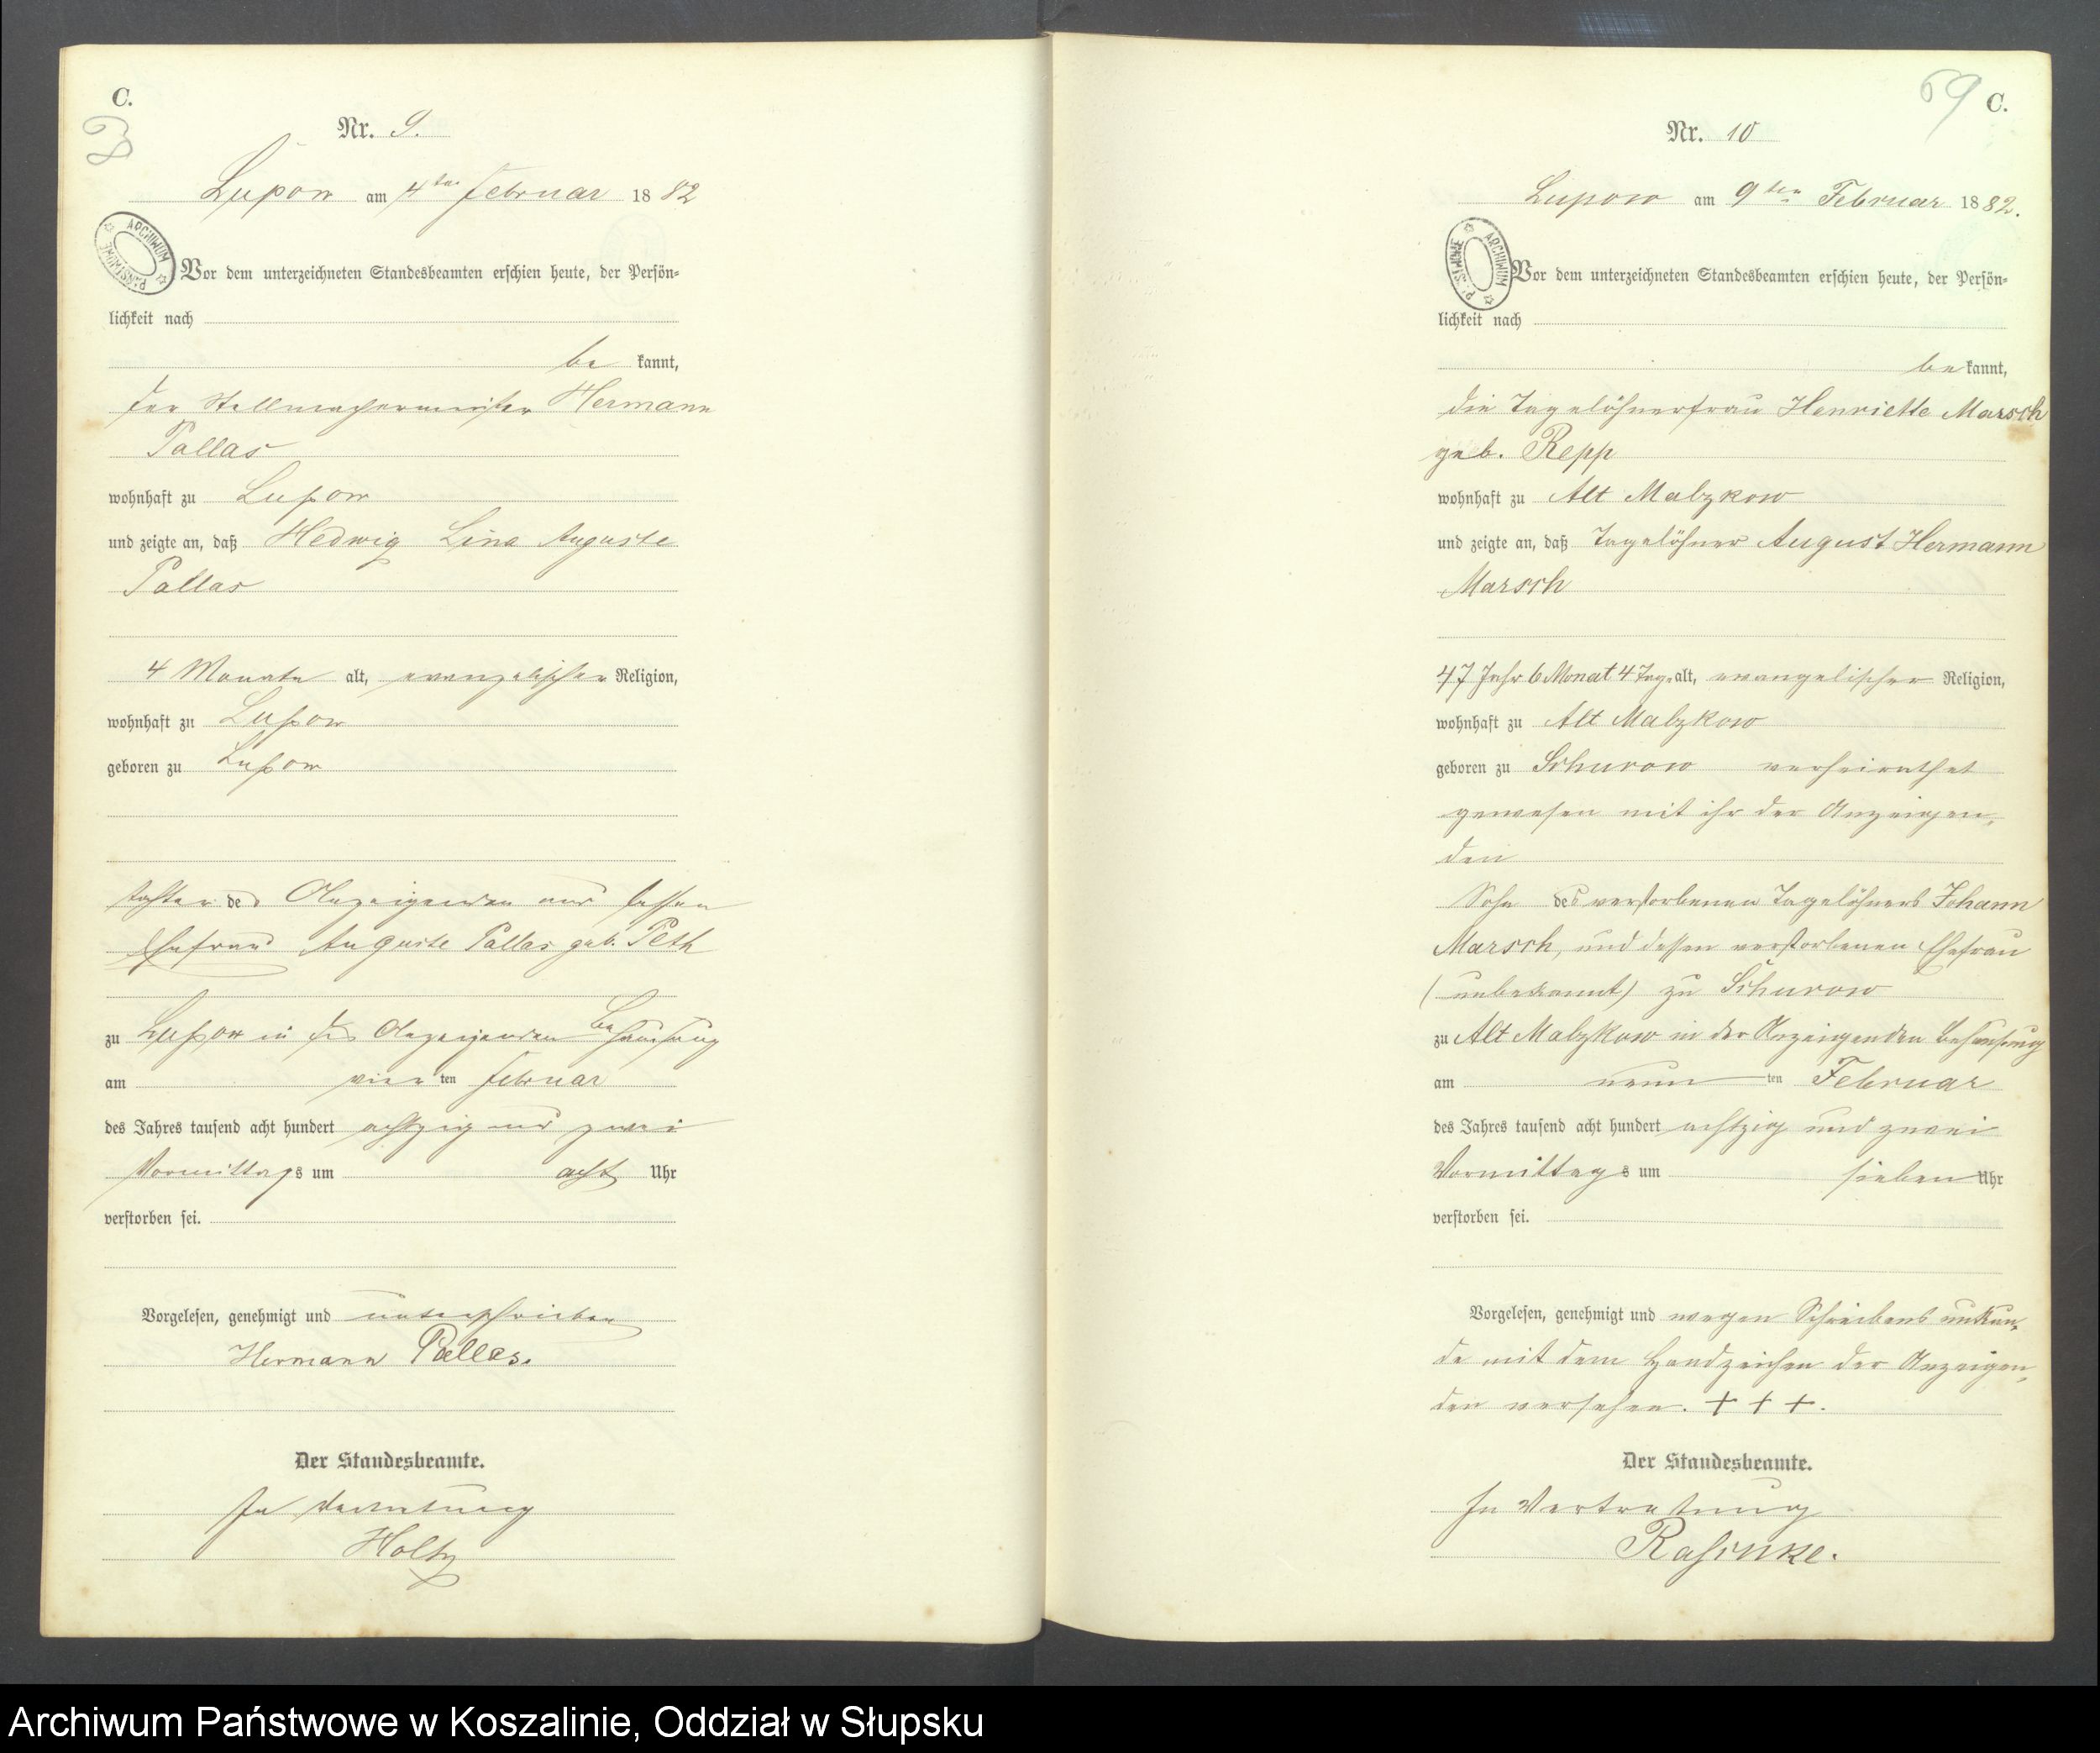 C.
Nr. 9.
Lupow am 4ten Februar 1882
ARCHIWUM PAŃSTWOWE
Vor dem unterzeichneten Standesbeamten erschien heute, der Persön-
lichkeit nach
be kannt,
der Stellmachermeister Hermann
Pallas
wohnhaft zu Lupow
und zeigte an, daß Hedwig Lina Auguste
Pallas
4 Monate alt, evangelischer Religion,
wohnhaft zu Lupow
geboren zu Lupow
Tochter des Anzeigenden und dessen
Ehefrau Auguste Pallas geb. Peth
zu Lupow in des Anzeigenden Behausung
am vier ten Februar
des Jahres tausend acht hundert achtzig und zwei
Vormittags um acht Uhr
verstorben sei.
Vorgelesen, genehmigt und unterschrieben
Hermann Pallas.
Der Standesbeamte.
In Vertretung
Holtz
69 C.
Nr. 10
Lupow am 9ten Februar 1882.
ARCHIWUM PAŃSTWOWE
Vor dem unterzeichneten Standesbeamten erschien heute, der Persön-
lichkeit nach
be kannt,
die Tagelöhnerfrau Henriette Marsch
geb. Repp
wohnhaft zu Alt Malzkow
und zeigte an, daß Tagelöhner August Hermann
Marsch
47 Jahr 6 Monat 4 Tage alt, evangelischer Religion,
wohnhaft zu Alt Malzkow
geboren zu Schurow verheirathet
gewesen mit ihr der Anzeigen-
den
Sohn des verstorbenen Tagelöhners Johann
Marsch, und dessen verstorbenen Ehefrau
(unbekannt) zu Schurow
zu Alt Malzkow in der Anzeigenden Behausung
am neun ten Februar
des Jahres tausend acht hundert achtzig und zwei
Vormittags um sieben Uhr
verstorben sei.
Vorgelesen, genehmigt und wegen Schreibens unkun-
de mit dem Handzeichen der Anzeigen-
den versehen. + + +.
Der Standesbeamte.
In Vertretung
Archiwum Państwowe w Koszalinie, Oddział w Słupsku